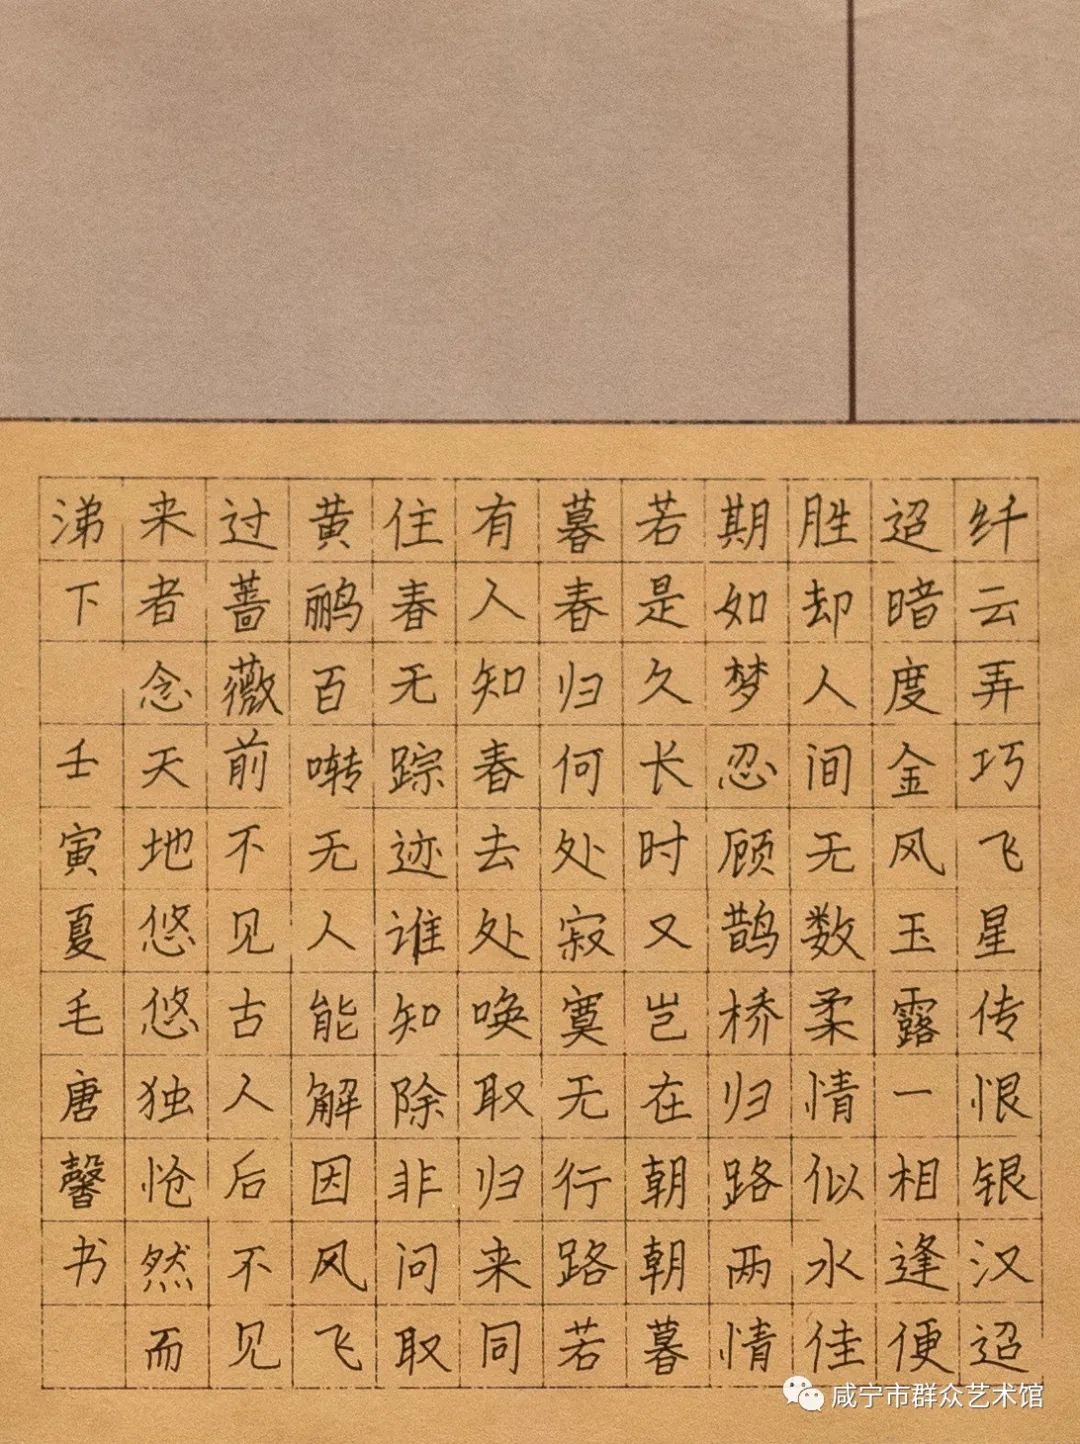 纤云弄巧飞星传恨银汉迢
迢暗度金风玉露一相逢便
胜却人间无数柔情似水佳
期如梦忍顾鹊桥归路两情
若是久长时又岂在朝朝暮
暮春归何处寂寞无行路若
有人知春去处唤取归来同
住春无踪迹谁知除非问取
黄鹂百啭无人能解因风飞
过蔷薇前不见古人后不见
来者念天地悠悠独怆然而
涕下 壬寅夏毛唐馨书
咸宁市群众艺术馆